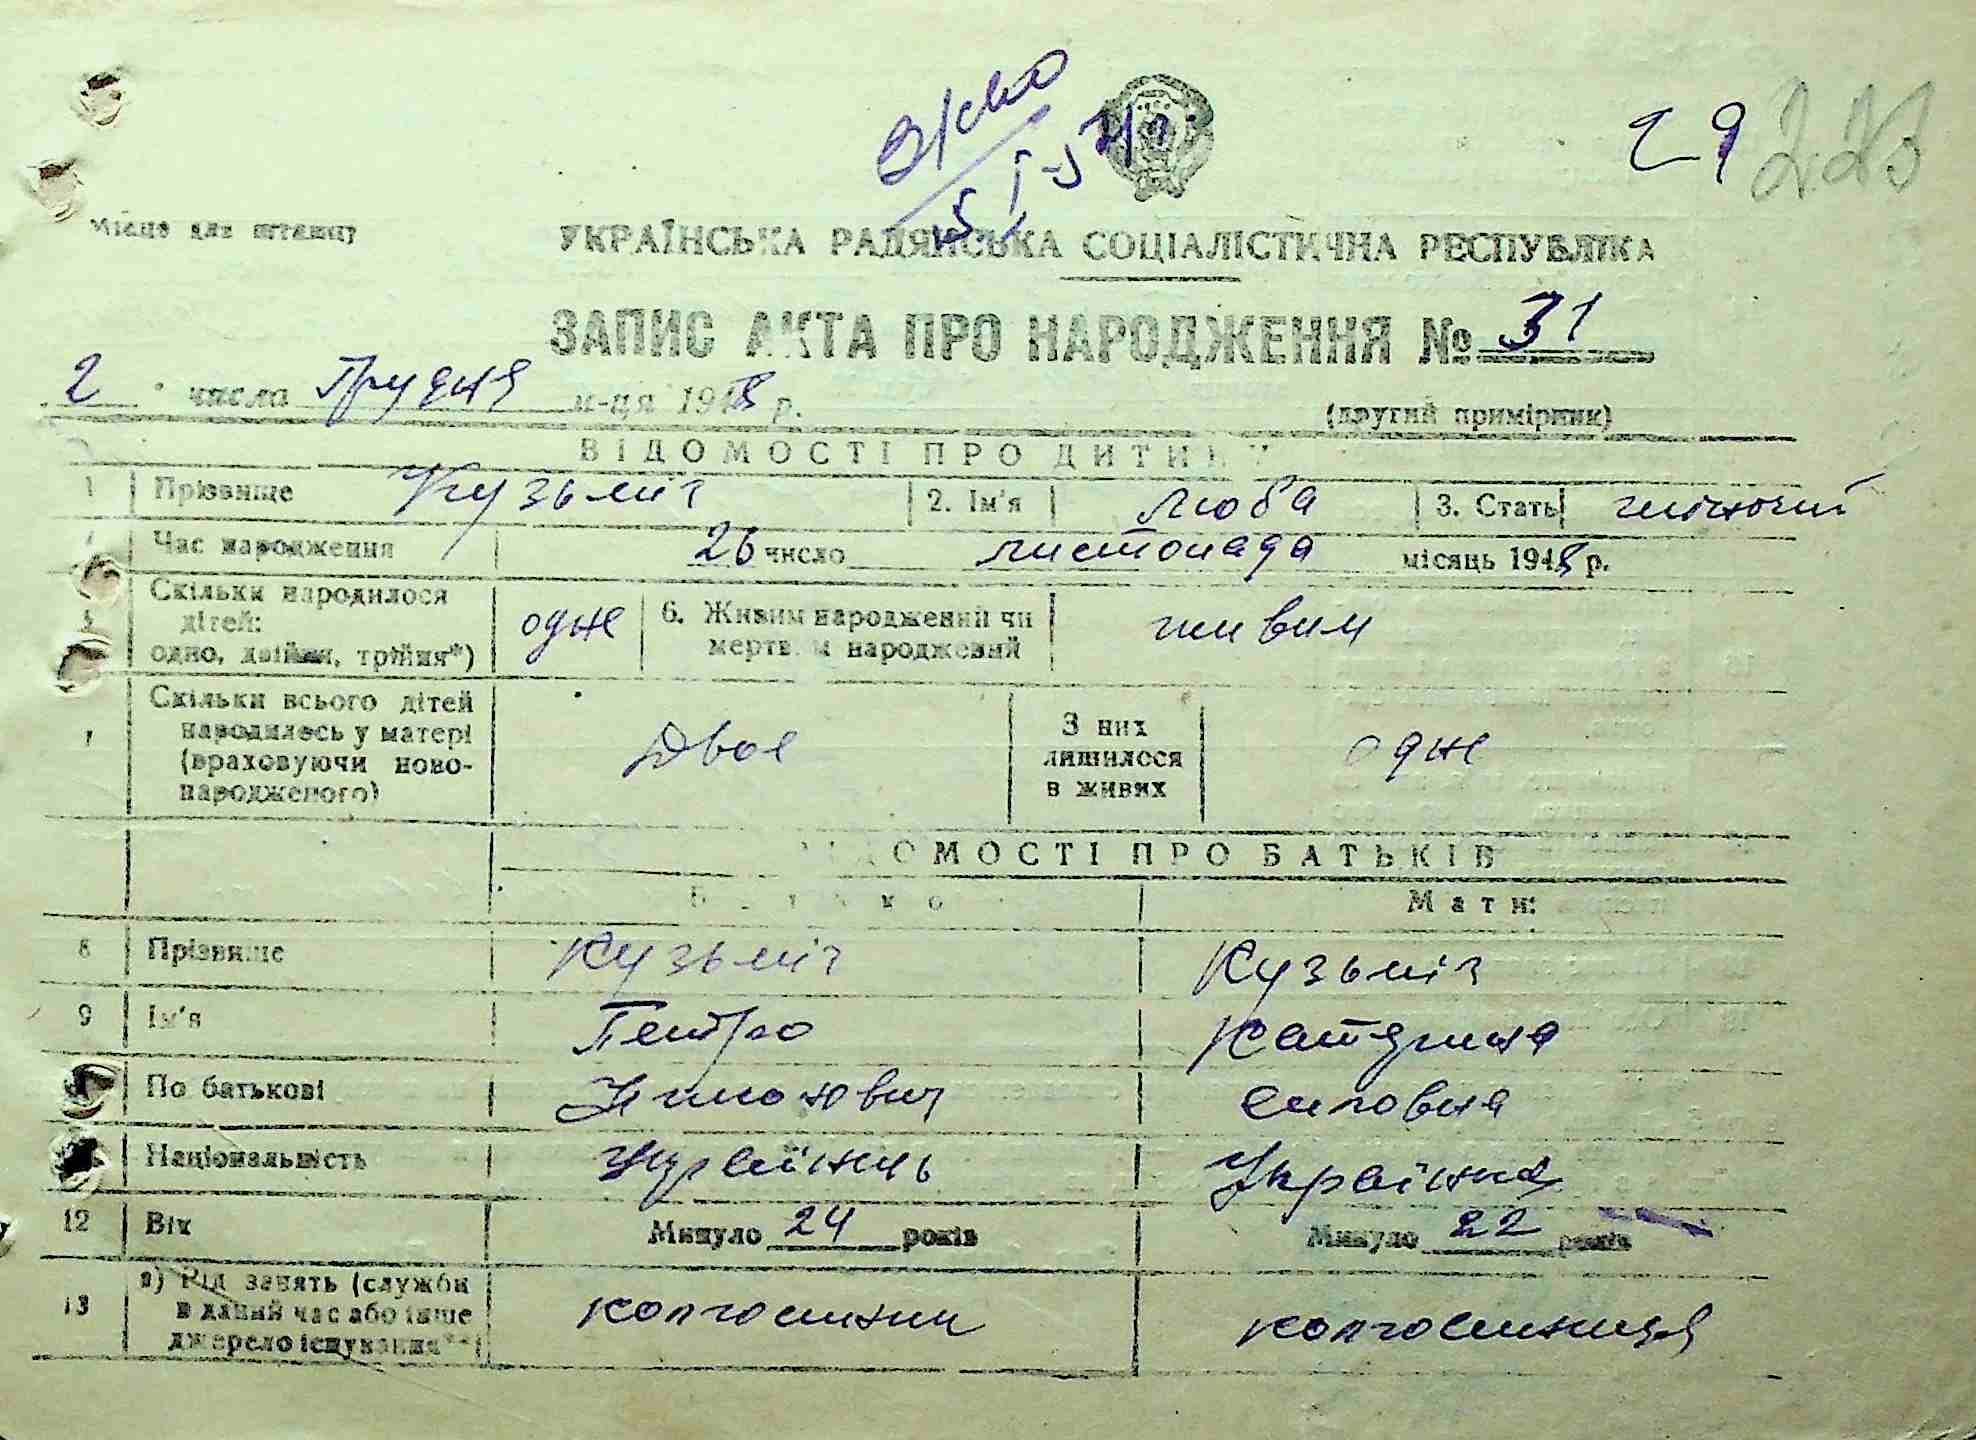 29 223
Місце для штампу
УКРАЇНСЬКА РАДЯНСЬКА СОЦІАЛІСТИЧНА РЕСПУБЛІКА
ЗАПИС АКТА ПРО НАРОДЖЕННЯ № 31
2 числа Грудня м-ця 1948 р.
(другий примірник)
ВІДОМОСТІ ПРО ДИТИНУ
1 Прізвище Кузьміч 2. Ім'я Люба 3. Стать жіночий
Час народження 26 число листопада місяць 1948 р.
5 Скільки народилося дітей: одно, двійня, трійня*) одне 6. Живим народжений чи мертвим народжений живим
7 Скільки всього дітей народилось у матері (враховуючи новонародженого) Двое З них лишилося в живих одне
ВІДОМОСТІ ПРО БАТЬКІВ
Батько Мати:
8 Прізвище Кузьміч Кузьміч
9 Ім'я Петро Катерина
По батькові Силовна
Національність Українець Українка
12 Вік Минуло 24 років Минуло 22 років
13 а) Рід занять (служби в даний час або інше джерело існування**) колгоспник колгоспниця